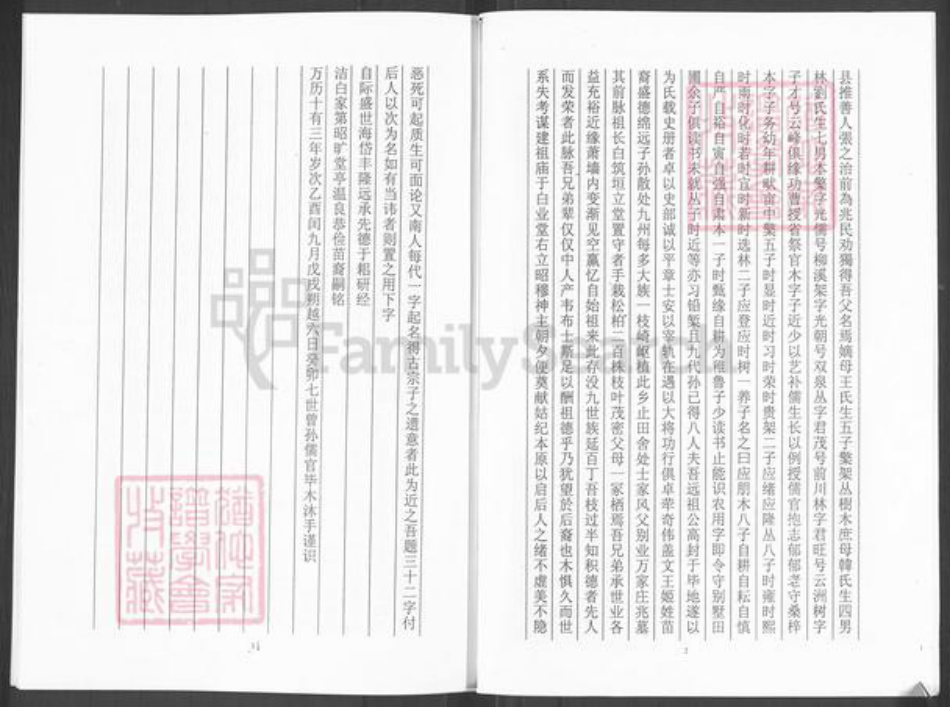 县推善人張之治前為兆民劝獨得吾父名焉嫡母王氏生五子檠架丛樹木庶母韓氏生四男
林劉氏生七男本檠字光儒号柳溪架字光朝号双泉丛字君茂号前川林字君旺号云洲树字
子才号云峰俱缘功曹授省祭官木字子近少以艺补儒生长以例授儒官抱志郁郁老守桑梓
本字子务幼年耕畎亩中檠五子时显时近时习时荣时贵架二子应绪应隆丛八子时雍时熙
时雨时化时若时宜时新时选林二子应登应时树一养子名之曰应朋木八子自耕自耘自慎
自严自裕自寅自强自肃本一子时甄缘自耕为稚鲁子少读书止能识农用字即令守别墅田
圃余子俱读书未就丛子时近等亦习铅椠且九代孙己得八人夫吾远祖公高封于毕地遂以
为氏载史册者卓以史部诚以平章士安以宰轨在遇以大将功行俱卓荦奇伟盖文王姬姓苗
裔盛德绵远子孙散处九州每多大族一枝崎岖植此乡止田舍处士家风父别业万家庄兆墓
其前脉祖长白筑垣立堂置守者手栽松柏二百株枝叶茂密父母一冢栖焉吾兄弟承世业各
益充裕近缘萧墙内变渐见空羸忆自始祖来此存没九世族延百丁吾枝过半知积德者先人
而发荣者此脉吾兄弟辈仅仅中人产韦布士斯足以酬祖德乎乃犹望於后裔也木惧久而世
系失考谋建祖庙于白业堂右立昭穆神主朝夕便奠献姑纪本原以启后人之绪不虚美不隐
2
恶死可起质生可面论又南人每代一字起名得古宗子之遗意者此为近之吾题三十二字付
后人以次为名如有当讳者则置之用下字
自际盛世海岱丰隆远承先德于耜研经
洁白家第昭旷堂亭温良恭俭苗裔嗣铭
万历十有三年岁次乙酉闰九月戊戌朔越六日癸卯七世曾孙儒官毕木沐手谨识
FamilySearch